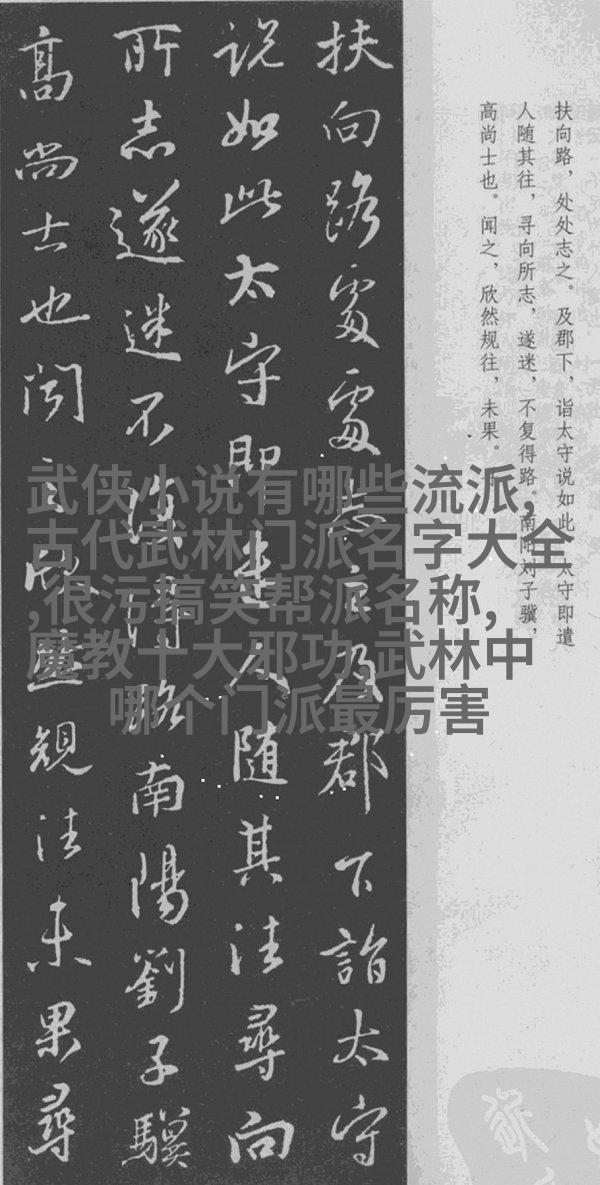 扶向路，处处志之。及郡下，诣太守说如此。太守即遣
人随其往，寻向所志，遂迷，不复得路。南阳刘子骥，
高尚士也。闻之，欣然规往，未果。
扶向路處處志之及郡下詣太守
说如此太守即遣人随其往尋向
所志遂迷不得得路南陽劉子驥
高尚士也闻之欣然規往未果尋
武侠小说有哪些流派,
古代武林门派名字大全
,很污搞笑帮派名称,
魔教十大邪功,武林中
哪个门派最厉害